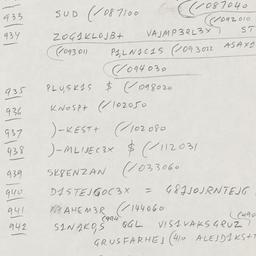 (/087040
933 SUD (/087100
(/092010
934 ZOG1KLOJB+ VAJMP3RL3X ST
(/093011 P1LN1C1S (/093022 ASAX
(/094030
935 PLUSK1S $ (/098020
936 KNOSP+ (/102050
937 )-KEST+ (/102080
938 )-MLIJEC3X $ (/112031
939 SK8ENZAN (/033060
940 D1STEJGOC3X =
941 AHEM3R (/144060
942 S1NJKDJS GGL VIS1VAKSGRUZ
GRUSFARHEJ (410 ALEJD1KS+